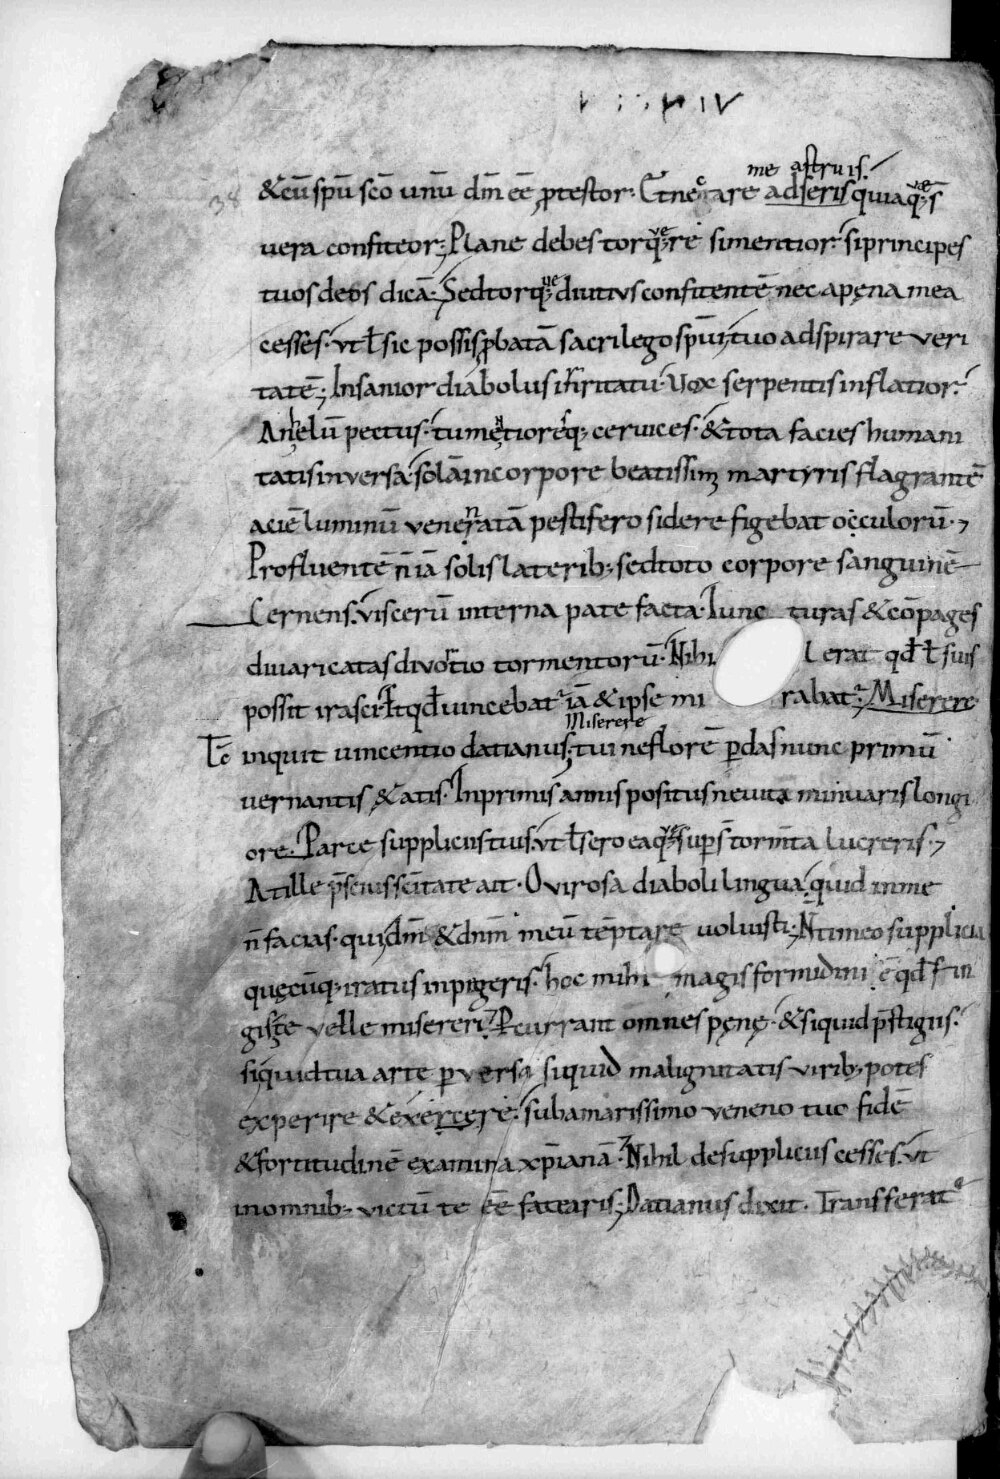 38
me astruis.
&cū spū scō unū dm̄ eē ptestor. Et negare adseris quia q̄ s̄
vera confiteor; Plane debes torqvere si mentior. si principes
tuos deos dicā. Sed torq; ve diutivs confitentē nec a pęna mea
cesses. ut ł sic possis pbatā sacrilego spū; tuo adspirare veri
tatē; Insanior diabolus irritatu. Uox serpentis inflatior.
Anhelū pectus. tumentiores q; cervices. & tota facies humani
tatis inversa. solā in corpore beatissim; martyris flagrantē
aciē luminū venenatā pestifero sidere figebat occulorū.,
Profluentē n̄ iā solis laterib; sed toto corpore sanguinē
Cernens. viscerū interna patefacta. Iunc turas & cōpages
divaricatas divortio tormentorū. Nihi l erat qđ ł suis
possit irasci. ł qđ vincebat iā & ipse mi rabat; Miserere
Miserere
inquit vincentio datianus; tui ne florē pdas nunc primū
vernantis &atis. In primis annis positus ne vita minuaris longi
ore. Parce suppliciis tuis. ut ł sero ea q; sup s̄t torm̄ta lucreris.,
At ille p̄scius sc̄itate ait. O virosa diaboli lingua. quid in me
n̄ facias. qui dm̄ & dnm̄ meū tēptare voluisti; N̄ timeo supplicia
quęcūq; iratus inpigeris. hoc mihi magis formidini ē qđ fin
gis te velle misereri; Pcurrant omnes pęnę. & si quid p̄stigiis.
si quid tua arte pversa si quid malignitatis virib; potes
experire & exercere. sub amarissimo veneno tuo fidē
& fortitudinē examina xp̄ianā. Nihil de suppliciis cesses. ut
in omnib; victū te eē fatearis; Datianus dixit. Transferat